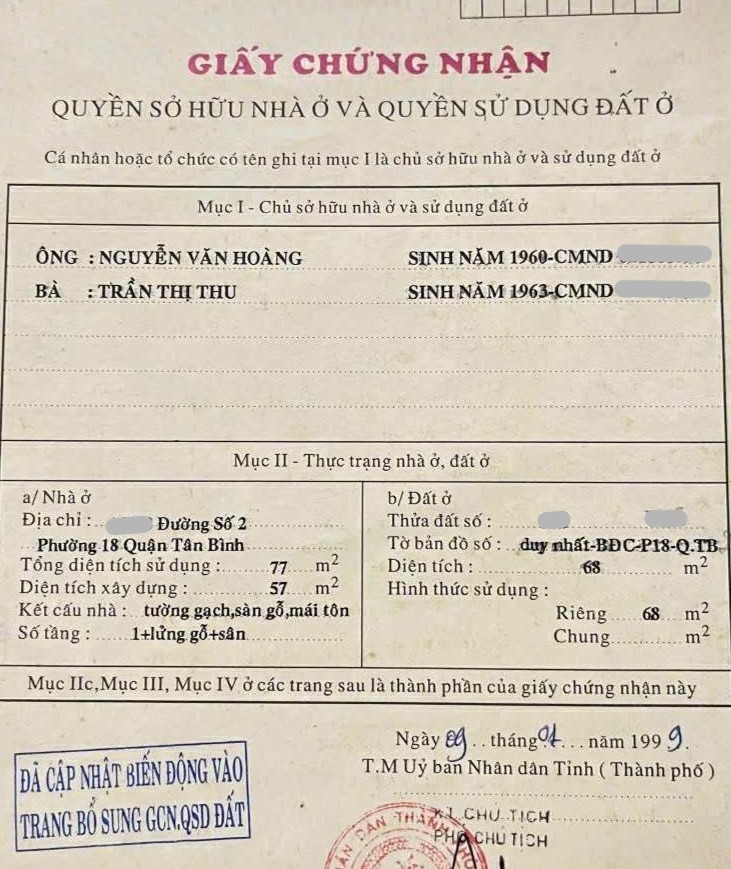 GIẤY CHỨNG NHẬN
QUYỀN SỞ HỮU NHÀ Ở VÀ QUYỀN SỬ DỤNG ĐẤT Ở
Cá nhân hoặc tổ chức có tên ghi tại mục I là chủ sở hữu nhà ở và sử dụng đất ở
Mục I - Chủ sở hữu nhà ở và sử dụng đất ở
ÔNG : NGUYỄN VĂN HOÀNG SINH NĂM 1960-CMND
BÀ : TRẦN THỊ THU SINH NĂM 1963-CMND
Mục II - Thực trạng nhà ở, đất ở
a/ Nhà ở
Địa chỉ : Đường Số 2
Phường 18 Quận Tân Bình
Tổng diện tích sử dụng : 77 m²
Diện tích xây dựng : 57 m²
Kết cấu nhà : tường gạch,sàn gỗ,mái tôn
Số tầng : 1+lửng gỗ+sân
b/ Đất ở
Thửa đất số :
Tờ bản đồ số : duy nhất-BĐC-P18-Q.TB
Diện tích : 68 m²
Hình thức sử dụng :
Riêng 68 m²
Chung m²
Mục IIc,Mục III, Mục IV ở các trang sau là thành phần của giấy chứng nhận này
Ngày 09 tháng 01 năm 1999.
T.M Uỷ ban Nhân dân Tỉnh ( Thành phố )
KT CHỦ TỊCH
PHÓ CHỦ TỊCH
ĐÃ CẬP NHẬT BIẾN ĐỘNG VÀO
TRANG BỔ SUNG GCN.QSD ĐẤT